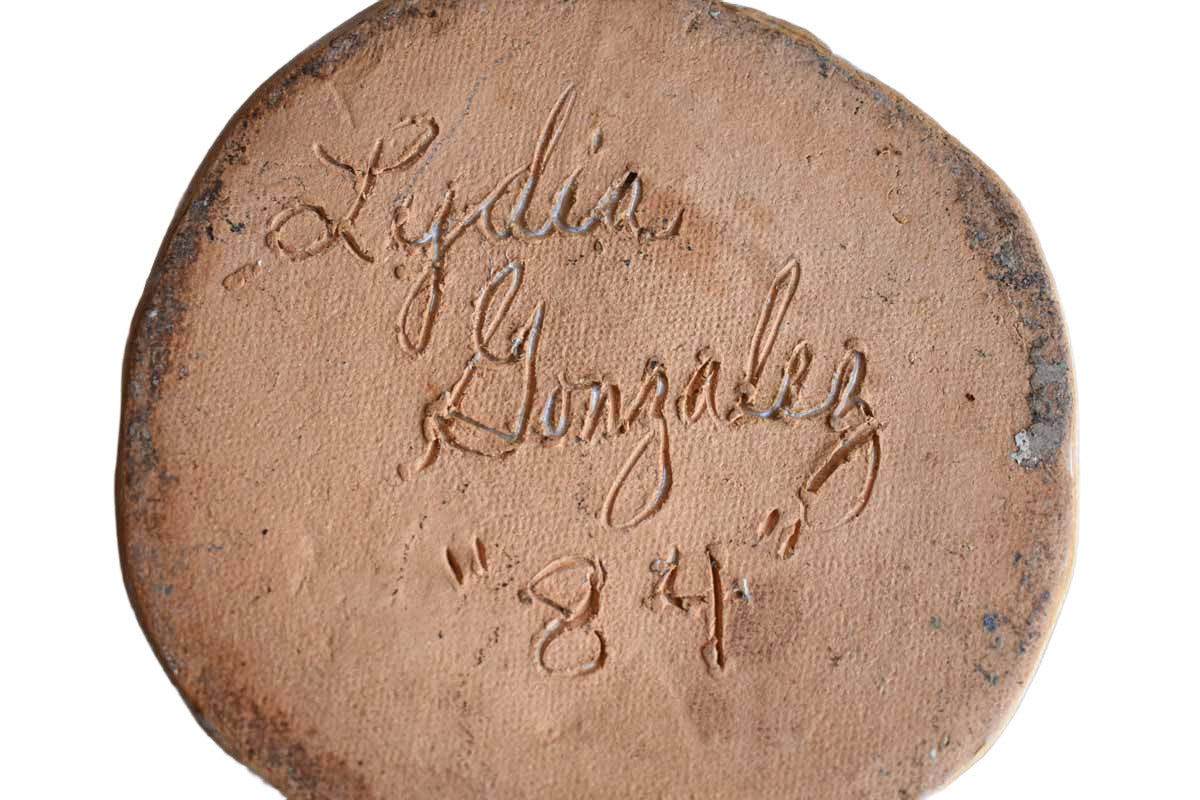 Lydia
Gonzalez
"84"